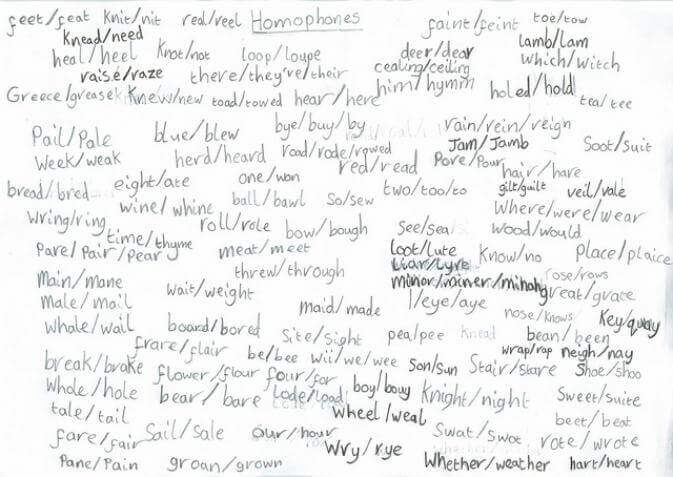 feet/feat knit/nit real/reel Homophones faint/feint toe/tow
knead/need lamb/lam
heal/heel knot/not loop/loupe deer/dear which/witch
raise/raze there/they're/their cealing/ceiling
Greece/grease knew/new toad/towed hear/here him/hymn holed/hold tea/tee
Pail/Pale blue/blew bye/buy/by rain/rein/reign
Week/weak herd/heard road/rode/rowed Jam/Jamb Soot/suit
red/read Pore/Pour hair/hare
bread/bred eight/ate one/won two/too/to gilt/guilt veil/vale
wring/ring wine/whine ball/bawl So/sew Where/were/wear
time/thyme roll/role bow/bough see/sea wood/would
Pare/Pair/Pear meat/meet loot/lute Know/no Place/plaice
Main/mane threw/through Liar/Lyre rose/rows
Male/mail wait/weight minor/ great/grate
maid/made I/eye/aye nose/knows Key/quay
Whale/wail board/bored Site/Sight pea/pee knead bean/been
frare/flair be/bee wii/we/wee wrap/rap neigh/nay
break/brake flower/flour four/for son/sun Stair/stare Shoe/shoo
Whole/hole bear/bare Lode/load boy/bouy Knight/night Sweet/suite
tale/tail Wheel/weal beet/beat
fare/fair Sail/Sale our/hour Swat/Swot rote/wrote
Wry/rye
Pane/Pain groan/grown Whether/weather hart/heart